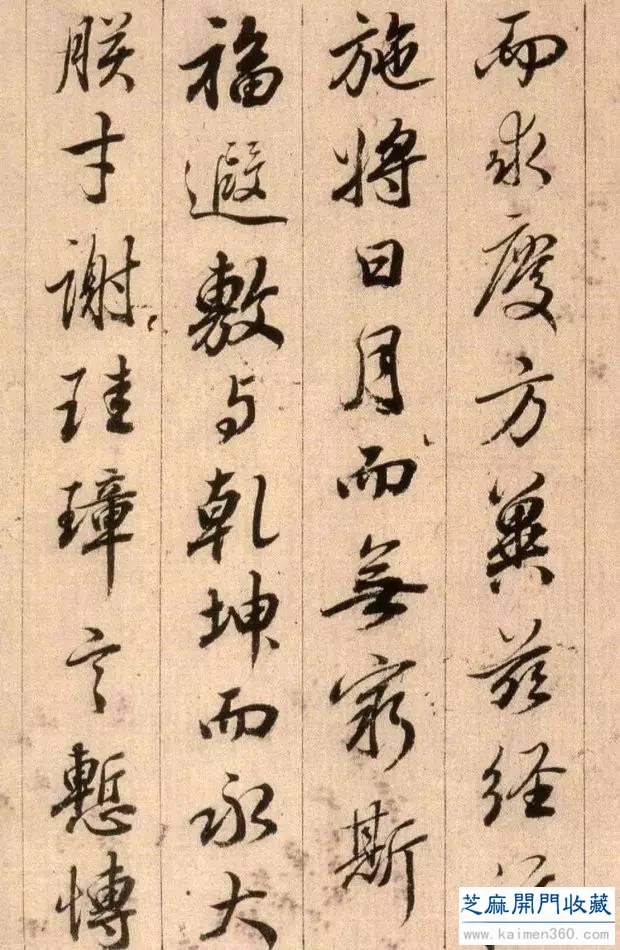 而求慶方冀茲経
施將日月而無窮斯
福遐敷与乾坤而永大
朕才謝珪璋言慙愽
芝麻開門收藏
www.kaimen360.com